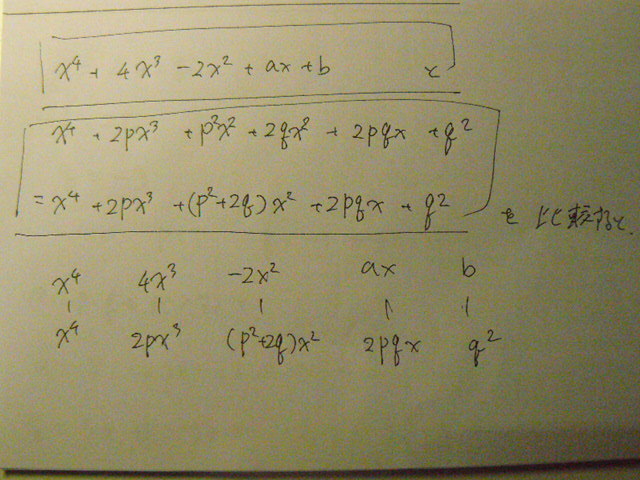 x⁴ + 4x³ - 2x² + ax + b と
x⁴ + 2px³ + p²x² + 2qx² + 2pqx + q²
= x⁴ + 2px³ + (p²+2q)x² + 2pqx + q² を比較すると、
x⁴ 4x³ -2x² ax b
x⁴ 2px³ (p²+2q)x² 2pqx q²